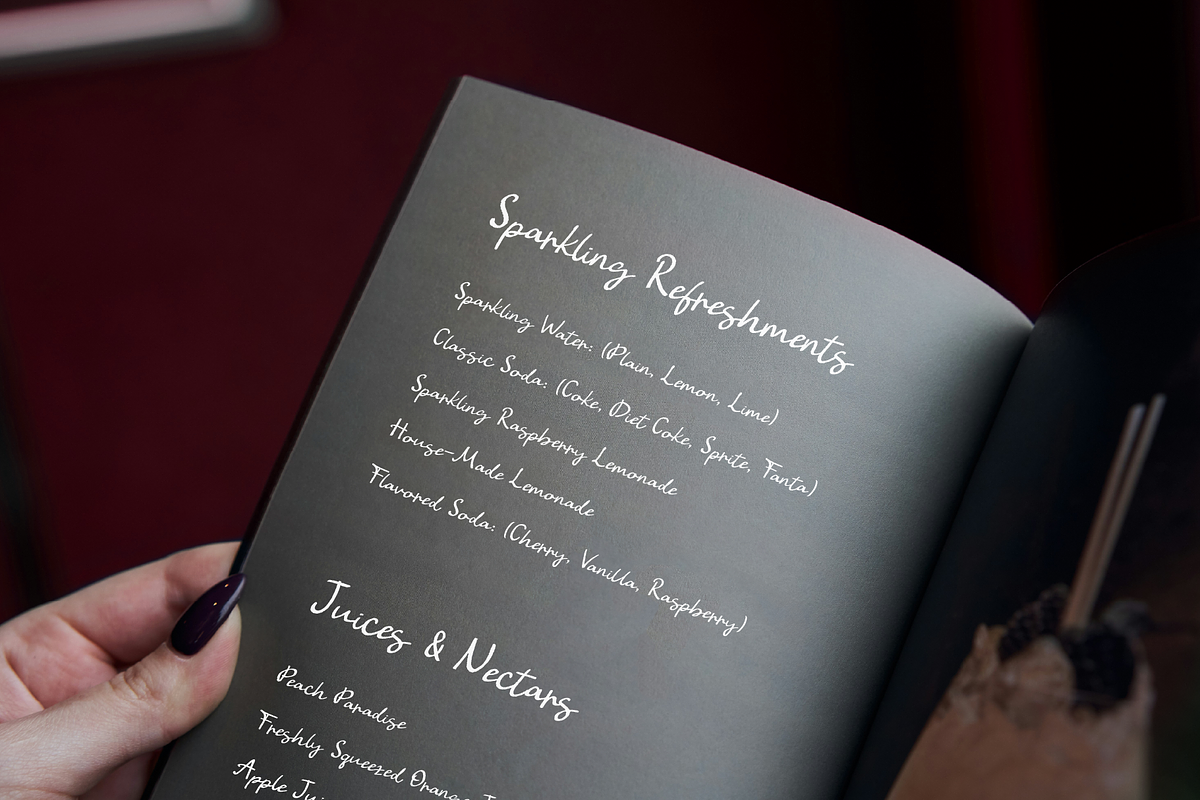 Sparkling Refreshments
Sparkling Water: (Plain, Lemon, Lime)
Classic Soda: (Coke, Diet Coke, Sprite, Fanta)
Sparkling Raspberry Lemonade
House-Made Lemonade
Flavored Soda: (Cherry, Vanilla, Raspberry)
Juices & Nectars
Peach Paradise
Freshly Squeezed
Apple